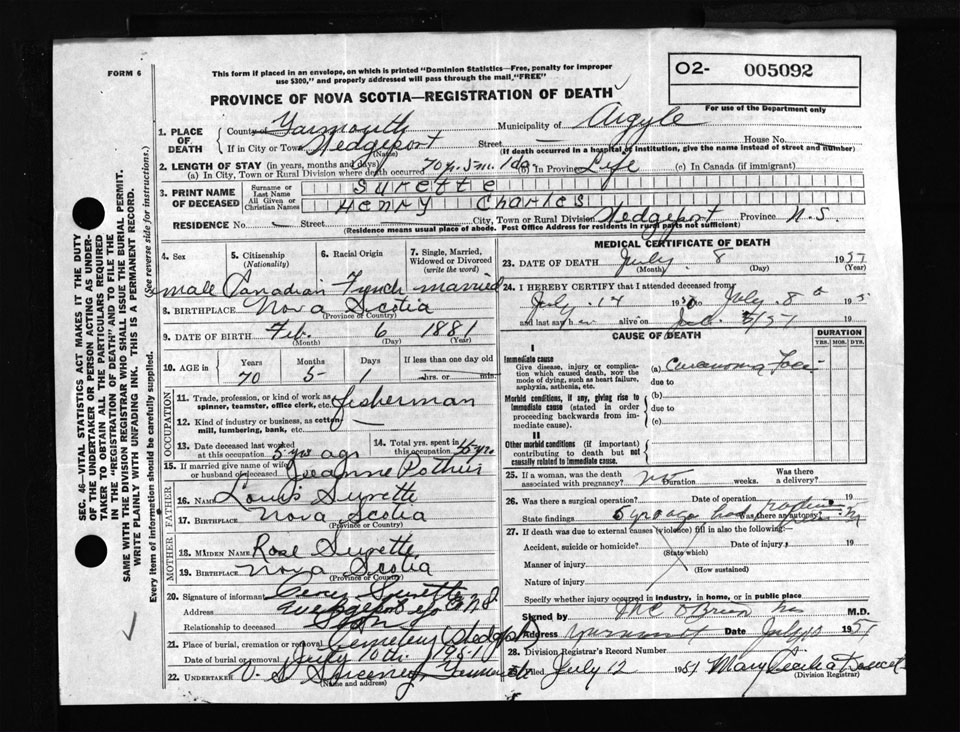 FORM 6
This form if placed in an envelope, on which is printed "Dominion Statistics—Free, penalty for improper
use $300," and properly addressed will pass through the mail "FREE"
O2- 005092
For use of the Department only
PROVINCE OF NOVA SCOTIA—REGISTRATION OF DEATH
1. PLACE OF DEATH
County of Yarmouth Municipality of Argyle
If in City or Town Wedgeport Street House No.
(Name) (If death occurred in a hospital or institution, give the name instead of street and number)
2. LENGTH OF STAY (in years, months and days)
(a) In City, Town or Rural Division where death occurred 70y. 5m. 1da. (b) In Province Life (c) In Canada (if immigrant)
3. PRINT NAME OF DECEASED
Surname or Last Name SURETTE
All Given or Christian Names HENRY CHARLES
RESIDENCE No. — Street City, Town or Rural Division Wedgeport Province N.S.
(Residence means usual place of abode. Post Office Address for residents in rural parts not sufficient)
4. Sex
5. Citizenship (Nationality)
6. Racial Origin
7. Single, Married, Widowed or Divorced (write the word)
male Canadian French married
8. BIRTHPLACE Nova Scotia
(Province or Country)
9. DATE OF BIRTH Feb. 6 1881
(Month) (Day) (Year)
10. AGE in Years Months Days If less than one day old
70 5 1 hrs. or min.
OCCUPATION
11. Trade, profession, or kind of work as spinner, teamster, office clerk, etc. fisherman
12. Kind of industry or business, as cotton mill, lumbering, bank, etc. —
13. Date deceased last worked at this occupation 5 yrs ago
14. Total yrs. spent in this occupation
15. If married give name of wife or husband of deceased Jeanne Pothier
FATHER
16. NAME Louis Surette
17. BIRTHPLACE Nova Scotia
(Province or Country)
MOTHER
18. MAIDEN NAME Rose Surette
19. BIRTHPLACE Nova Scotia
(Province or Country)
20. Signature of informant Surette
Address Wedgeport N.S.
Relationship to deceased Son
21. Place of burial, cremation or removal Cemetery Wedgeport
Date of burial or removal July 10th 1951
22. UNDERTAKER V. S. Sweeney Yarmouth
(Name and address)
MEDICAL CERTIFICATE OF DEATH
23. DATE OF DEATH July 8 1951
(Month) (Day) (Year)
24. I HEREBY CERTIFY that I attended deceased from
July 14 1950 to July 8 195
and last saw h alive on 19
CAUSE OF DEATH
DURATION
YRS. MOS. DYS.
I
Immediate cause
Give disease, injury or complication which caused death, NOT the mode of dying, such as heart failure, asphyxia, asthenia, etc.
(a) Carcinoma
due to
Morbid conditions, if any, giving rise to immediate cause (stated in order proceeding backwards from immediate cause).
(b)
due to
(c)
II
Other morbid conditions (if important) contributing to death but not causally related to immediate cause.
25. If a woman, was the death associated with pregnancy? Duration weeks. Was there a delivery?
26. Was there a surgical operation? Date of operation 19
State findings 5 yrs ago had Was there an autopsy?
27. If death was due to external causes (violence) fill in also the following:
Accident, suicide or homicide? Date of injury 19
(State which)
Manner of injury
(How sustained)
Nature of injury
Specify whether injury occurred in industry, in home, or in public place
Signed by O'Brien M.D.
Address Yarmouth Date July 10 1951
28. Division Registrar's Record Number
Filed July 12 1951 Mary Cecilia Doucet
(Division Registrar)
SEC. 46—VITAL STATISTICS ACT MAKES IT THE DUTY
OF THE UNDERTAKER OR PERSON ACTING AS UNDERTAKER
TO OBTAIN ALL THE PARTICULARS REQUIRED
IN THE "REGISTRATION OF DEATH" AND TO FILE THE
SAME WITH THE DIVISION REGISTRAR WHO SHALL ISSUE THE BURIAL PERMIT.
WRITE PLAINLY WITH UNFADING INK. THIS IS A PERMANENT RECORD.
Every item of information should be carefully supplied. (See reverse side for instructions.)